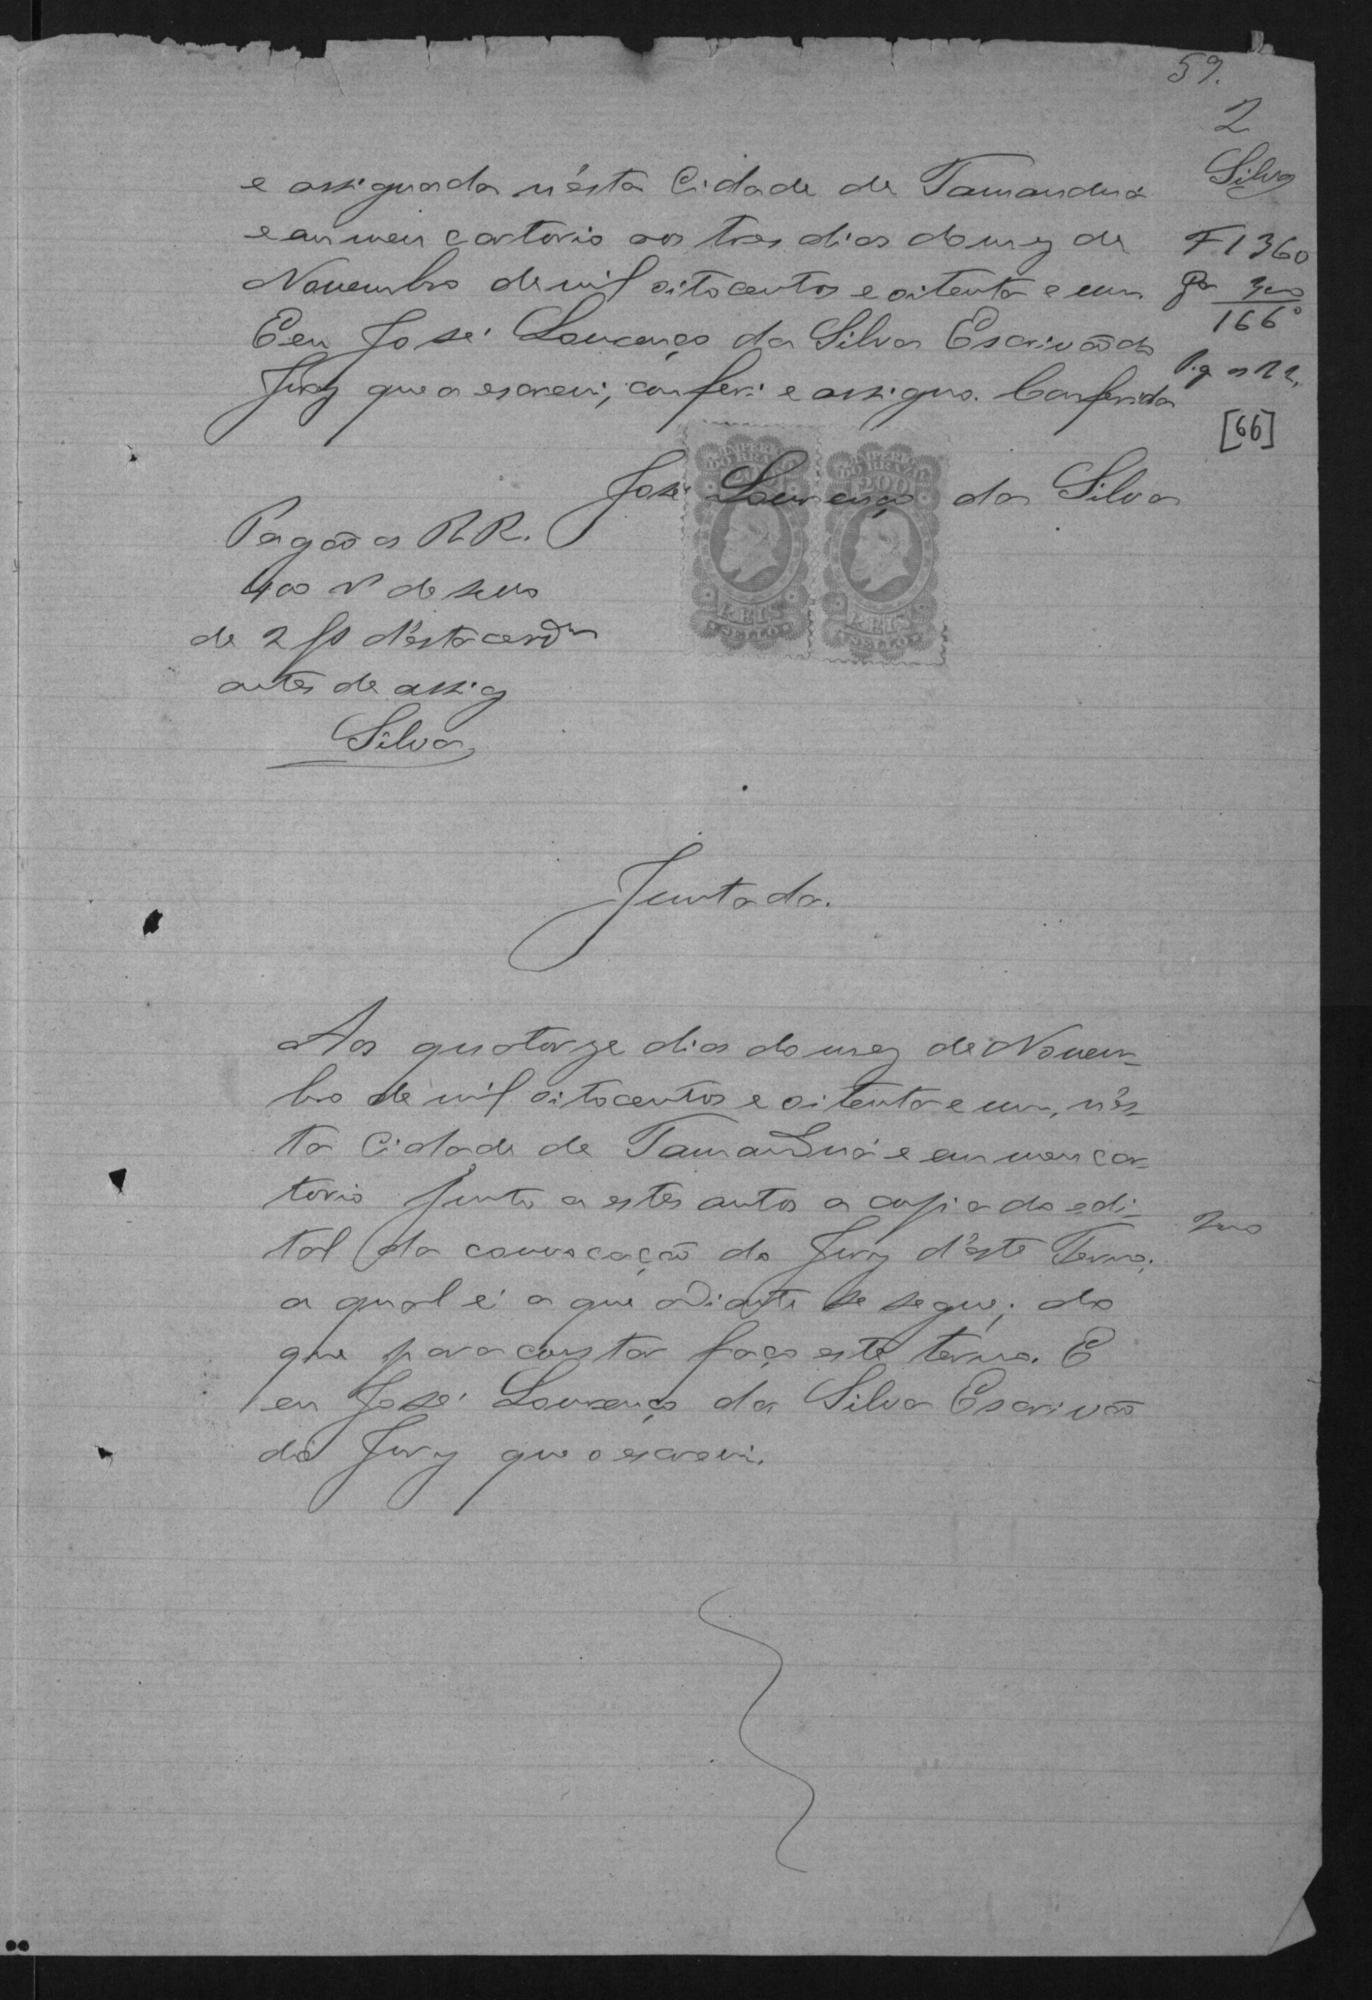 59.
2
Silva
e assignada n'ésta Cidade de Tamanduá
e em meu cartorio aos tres dias do mez de
Novembro de mil oitocentos e oitenta e um
E eu José Lourenço da Silva Escrivão do
Jury que a escrevi, conferi e assigno. Conferida
José Lourenço da Silva
F 1360
300
1660
[66]
IMPERIO DO BRAZIL
200
REIS
SELLO
IMPERIO DO BRAZIL
200
REIS
SELLO
Pagão os RR.
400 rs de sello
de 2 fs d'ésta certidm
antes de assig
Silva
Juntada.
Aos quatorze dias do mez de Novem-
bro de mil oitocentos e oitenta e um, n'es-
ta Cidade de Tamanduá e em meu car-
torio junto a estes autos a copia do edi-
tal da convocação do Jury d'este Termo,
a qual é a que adiante se segue; do
que para constar faço este termo. E
eu José Lourenço da Silva Escrivão
do Jury que o escrevi.